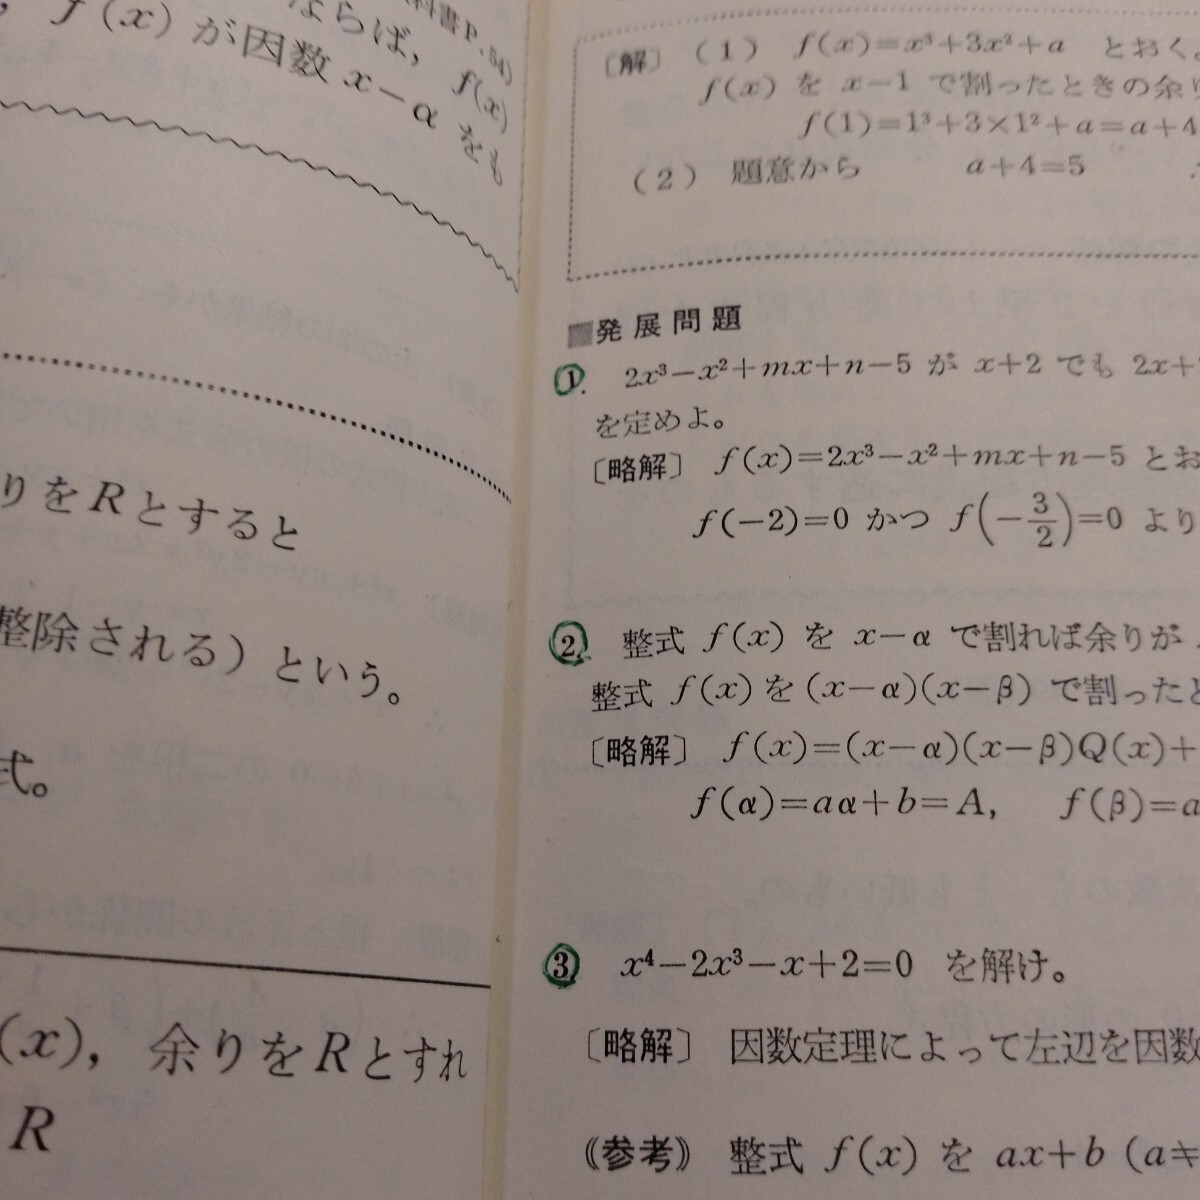 科書P.54)
ならば, f(x)
f(x) が因数 x−α をも
りをRとすると
整除される) という。
式。
(x), 余りをRとすれ
R
〔解〕 (1) f(x)=x³+3x²+a とおく
f(x) を x−1 で割ったときの余り
f(1)=1³+3×1²+a=a+4
(2) 題意から a+4=5
■発展問題
1. 2x³−x²+mx+n−5 が x+2 でも 2x+
を定めよ。
〔略解〕 f(x)=2x³−x²+mx+n−5 とお
f(−2)=0 かつ f(−3/2)=0 より
2. 整式 f(x) を x−α で割れば余りが
整式 f(x) を (x−α)(x−β) で割ったと
〔略解〕 f(x)=(x−α)(x−β)Q(x)+
f(α)=aα+b=A, f(β)=a
3. x⁴−2x³−x+2=0 を解け。
〔略解〕 因数定理によって左辺を因数
《参考》 整式 f(x) を ax+b (a≠